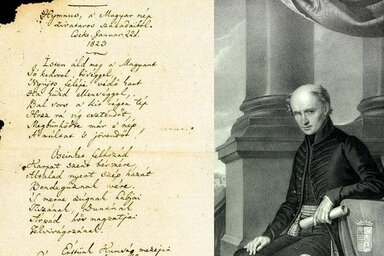 Hymnus, a' Magyar nép
zivataros századaiból.
Cseke Januar. 22d.
1823
Isten áld meg a' Magyart
Jó kedvvel, bőséggel,
Nyújts feléje védő kart
Ha küzd ellenséggel,
Bal sors a' kit régen tép
Hozz rá víg esztendőt,
Megbűnhödte már e' nép
A' múltat 's jövendőt!
Őseinket felhozád
Kárpát szent bérczére,
Általad nyert szép hazát
Bendegúznak vére.
'S merre zúgnak habjai
Tiszának, Dunának,
Árpád' hős magzatjai
Felvirágozának.
Értünk Kunság mezején